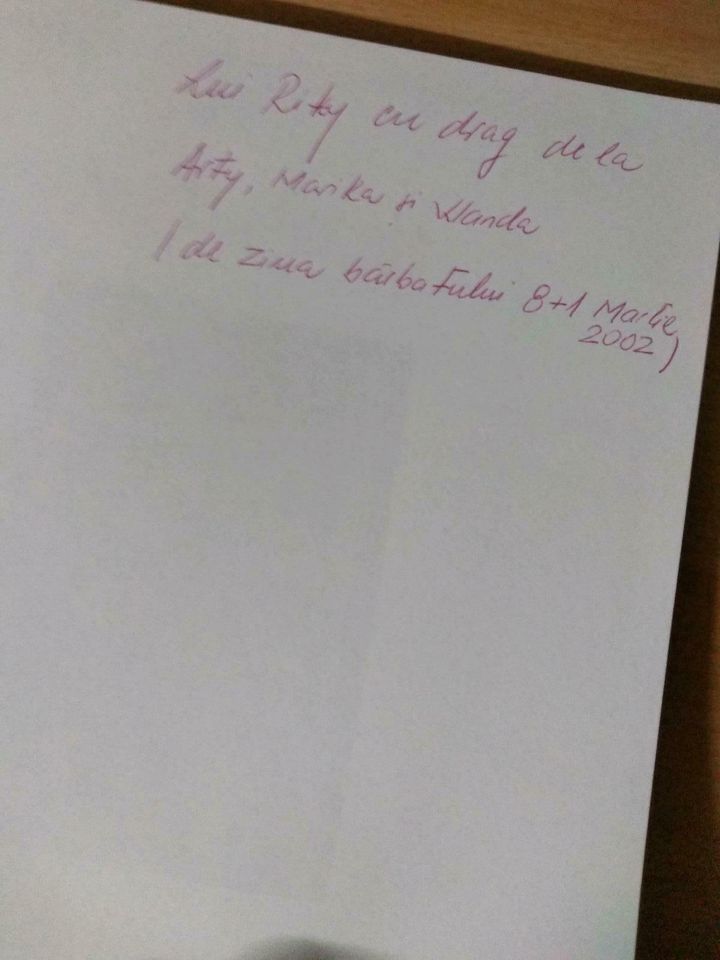 Lui Rity cu drag de la
Arty, Marika si Wanda
( de ziua bărbatului 8+1 Martie
2002)